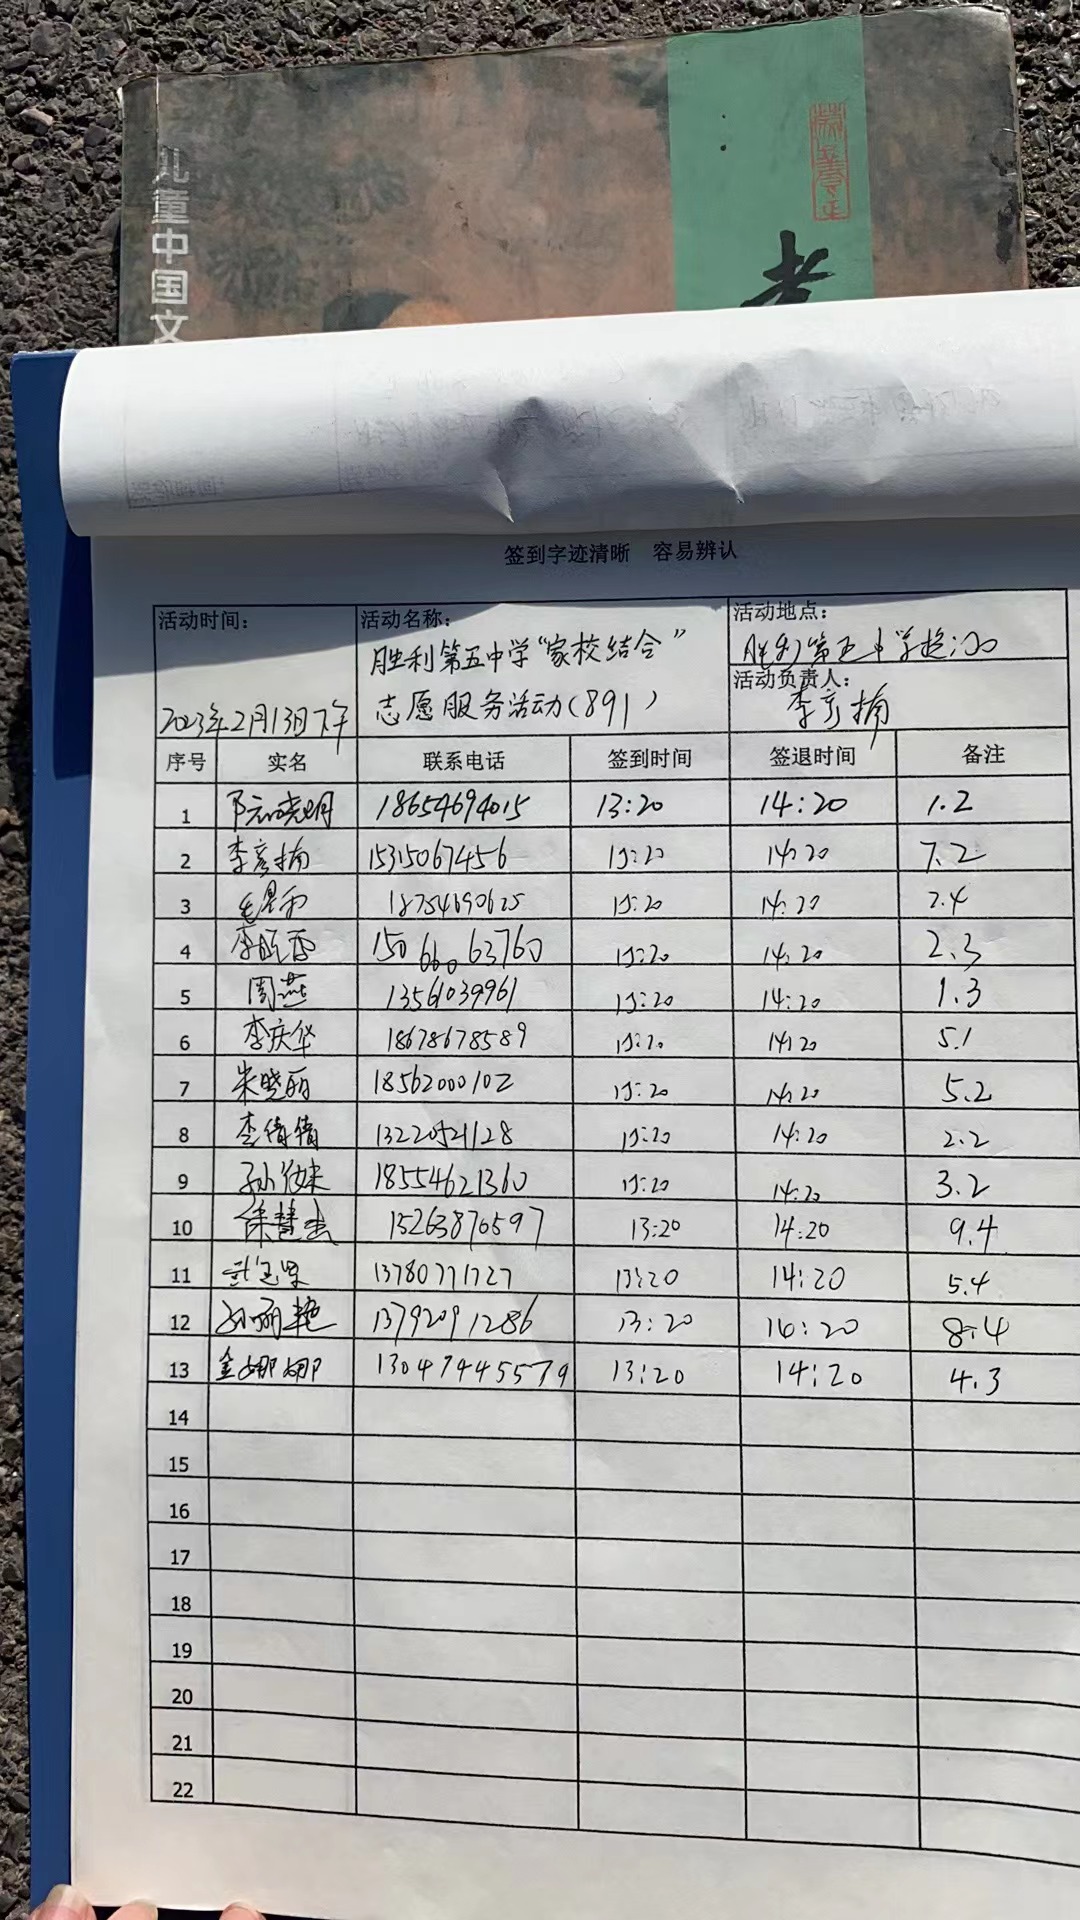 儿童中国文
签到字迹清晰 容易辨认
活动时间: 活动名称: 活动地点:
胜利第五中学"家校结合" 胜利第五中学
志愿服务活动(891) 活动负责人:
2023年2月13日下午 李彦楠
序号 实名 联系电话 签到时间 签退时间 备注
1 18654694015 13:20 14:20 1.2
2 李彦楠 15315067456 13:20 14:20 7.2
3 18754690625 13:20 14:20 2.4
4 15066063760 13:20 14:20 2.3
5 周燕 13561039961 13:20 14:20 1.3
6 李庆华 18678678589 13:20 14:20 5.1
7 朱晓丽 18562000102 13:20 14:20 5.2
8 李倩倩 13220521128 13:20 14:20 2.2
9 18554621360 13:20 14:20 3.2
10 15263870597 13:20 14:20 9.4
11 13780771727 13:20 14:20 5.4
12 孙丽艳 13792091286 13:20 14:20 8.4
13 金娜娜 13047445579 13:20 14:20 4.3
14
15
16
17
18
19
20
21
22